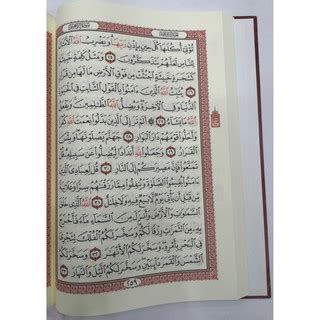 تُؤْتِىٓ أُكُلَهَا كُلَّ حِينٍۭ بِإِذْنِ رَبِّهَا ۗ وَيَضْرِبُ ٱللَّهُ ٱلْأَمْثَالَ
لِلنَّاسِ لَعَلَّهُمْ يَتَذَكَّرُونَ ٢٥ وَمَثَلُ كَلِمَةٍ خَبِيثَةٍ
كَشَجَرَةٍ خَبِيثَةٍ ٱجْتُثَّتْ مِن فَوْقِ ٱلْأَرْضِ مَا لَهَا مِن قَرَارٍ
٢٦ يُثَبِّتُ ٱللَّهُ ٱلَّذِينَ ءَامَنُوا۟ بِٱلْقَوْلِ ٱلثَّابِتِ فِى ٱلْحَيَوٰةِ
ٱلدُّنْيَا وَفِى ٱلْءَاخِرَةِ ۖ وَيُضِلُّ ٱللَّهُ ٱلظَّٰلِمِينَ ۚ وَيَفْعَلُ
ٱللَّهُ مَا يَشَآءُ ٢٧ أَلَمْ تَرَ إِلَى ٱلَّذِينَ بَدَّلُوا۟ نِعْمَتَ ٱللَّهِ كُفْرًا
وَأَحَلُّوا۟ قَوْمَهُمْ دَارَ ٱلْبَوَارِ ٢٨ جَهَنَّمَ يَصْلَوْنَهَا ۖ وَبِئْسَ
ٱلْقَرَارُ ٢٩ وَجَعَلُوا۟ لِلَّهِ أَندَادًا لِّيُضِلُّوا۟ عَن سَبِيلِهِۦ ۗ قُلْ
تَمَتَّعُوا۟ فَإِنَّ مَصِيرَكُمْ إِلَى ٱلنَّارِ ٣٠ قُل لِّعِبَادِىَ ٱلَّذِينَ
ءَامَنُوا۟ يُقِيمُوا۟ ٱلصَّلَوٰةَ وَيُنفِقُوا۟ مِمَّا رَزَقْنَٰهُمْ سِرًّا وَعَلَانِيَةً
مِّن قَبْلِ أَن يَأْتِىَ يَوْمٌ لَّا بَيْعٌ فِيهِ وَلَا خِلَٰلٌ ٣١ ٱللَّهُ ٱلَّذِى
خَلَقَ ٱلسَّمَٰوَٰتِ وَٱلْأَرْضَ وَأَنزَلَ مِنَ ٱلسَّمَآءِ مَآءً فَأَخْرَجَ
بِهِۦ مِنَ ٱلثَّمَرَٰتِ رِزْقًا لَّكُمْ ۖ وَسَخَّرَ لَكُمُ ٱلْفُلْكَ لِتَجْرِىَ
فِى ٱلْبَحْرِ بِأَمْرِهِۦ ۖ وَسَخَّرَ لَكُمُ ٱلْأَنْهَٰرَ ٣٢ وَسَخَّرَ لَكُمُ
ٱلشَّمْسَ وَٱلْقَمَرَ دَآئِبَيْنِ ۖ وَسَخَّرَ لَكُمُ ٱلَّيْلَ وَٱلنَّهَارَ ٣٣
٢٥٩